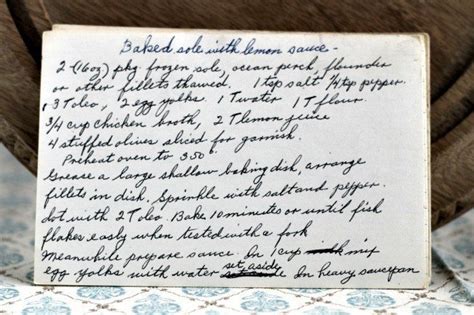 Baked sole with lemon sauce -
2 (16oz) pkg frozen sole, ocean perch, flounder
or other fillets thawed. 1 tsp salt ¼ tsp pepper.
3 T oleo, 2 egg yolks 1 T water 1 T flour.
3/4 cup chicken broth, 2 T lemon juice
4 stuffed olives sliced for garnish.
Preheat oven to 350°
Grease a large shallow baking dish, arrange
fillets in dish. Sprinkle with salt and pepper.
dot with 2 T oleo. Bake 10 minutes or until fish
flakes easly when tested with a fork
Meanwhile prepare sauce. In 1 cup mix
egg yolks with water set aside In heavy saucepan